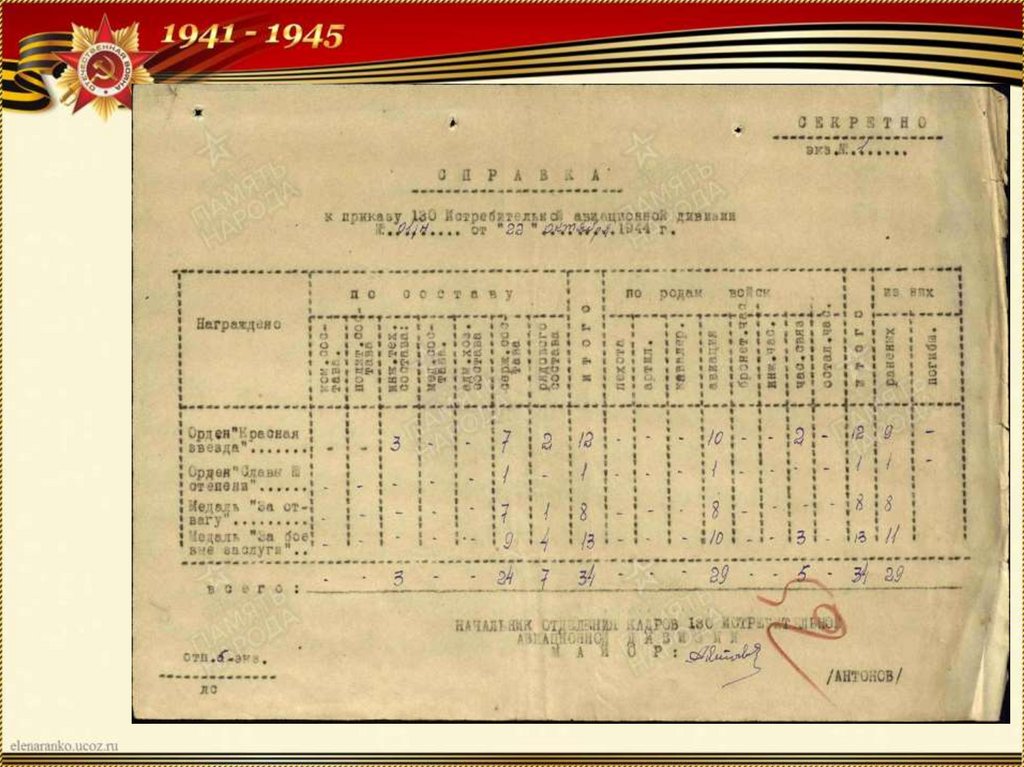 1941 - 1945
СЕКРЕТНО
экз.№ 1
СПРАВКА
к приказу 130 Истребительной авиационной дивизии
от "22" октября 1944 г.
Награждено
по составу
ИТОГО
по родам войск
ИТОГО
из них
ком.состава.
полит.состава
инж.тех.состава:
мед.состава.
адм.хоз.состава
серж.состава
рядового состава
пехота
артил.
кавалер.
авиация
бронет.час.
инж.час.
час.связи
остал.час.
раненых
погибш.
Орден "Красная
звезда"....... - - 3 - - 7 2 12 - - - 10 - - 2 - 12 9 -
Орден "Слава III
степени"...... - - - - - 1 - 1 - - - 1 - - - - 1 1 -
Медаль "За от-
вагу"......... - - - - - 7 1 8 - - - 8 - - - - 8 8
Медаль "За бое
вые заслуги".. - - - - - 9 4 13 - - - 10 - - 3 - 13 11
всего: - - 3 - - 24 7 34 - - - 29 - - 5 - 34 29
НАЧАЛЬНИК ОТДЕЛЕНИЯ КАДРОВ 130 ИСТРЕБИТЕЛЬНО
АВИАЦИОННОЙ ДИВИЗИИ
МАЙОР:
/АНТОНОВ/
отп.5-экз.
лс
ПАМЯТЬ НАРОДА
elenaranko.ucoz.ru